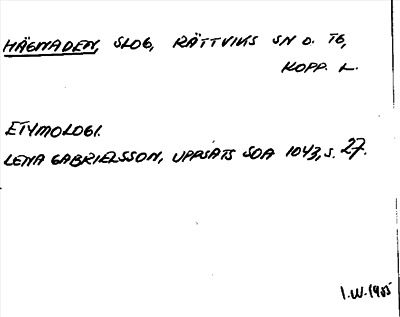 HÄGNADEN, SLOG, RÄTTVIKS SN O. TG,
KOPP. L.
ETYMOLOGI.
LENA GABRIELSSON, UPPSATS SOA 1043, S. 27.
I.W. 1985